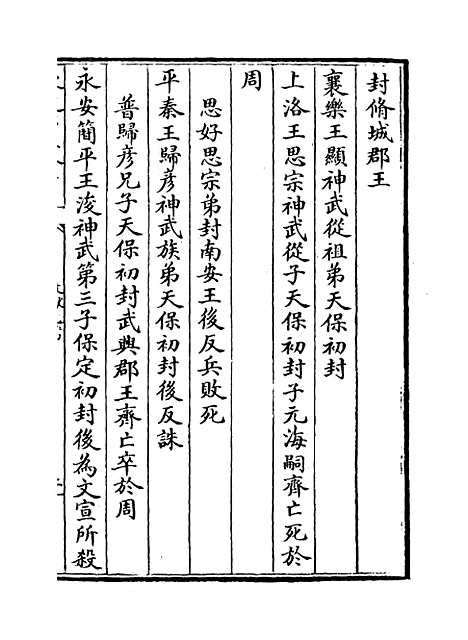 封脩城郡王
襄樂王顯神武從祖弟天保初封
上洛王思宗神武從子天保初封子元海嗣齊亡死於
周
思好思宗弟封南安王後反兵敗死
平秦王歸彥神武族弟天保初封後反誅
普歸彥兄子天保初封武興郡王齊亡卒於周
永安簡平王浚神武第三子保定初封後為文宣所殺